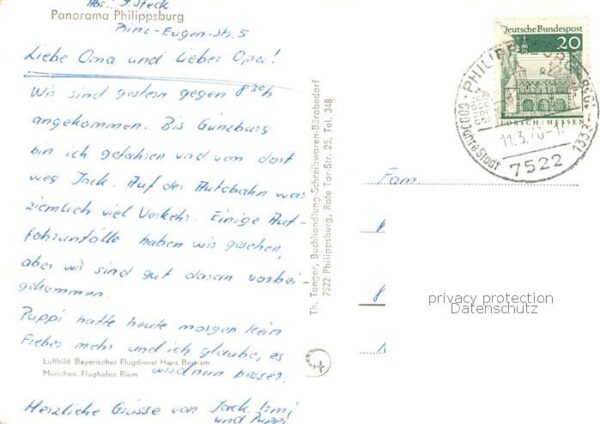 Abs.: J. Steck
Panorama Philippsburg
Prinz-Eugen-Str. 5
Liebe Oma und lieber Opa!
Wir sind gestern gegen 8³⁰h
angekommen. Bis Günzburg
bin ich gefahren und von dort
weg Jack. Auf der Autobahn war
ziemlich viel Verkehr. Einige Aut-
fahrunfälle haben wir gesehen,
aber wir sind gut daran vorbei-
gekommen.
Puppi hatte heute morgen kein
Fieber mehr und ich glaube, es
wird nun besser.
Luftbild Bayerischer Flugdienst Hans Bertram
München, Flughafen Riem
Herzliche Grüsse von Jack,
und Puppi
Th. Tonger, Buchhandlung-Schreibwaren-Bürobedarf
7522 Philippsburg, Rote Tor-Str. 25, Tel. 348
Deutsche Bundespost
20
LORSCH/HESSEN
PHILIPPSBURG
600 Jahre Stadt
1338-1938
11.3.70
7522
Fam.
privacy protection
Datenschutz